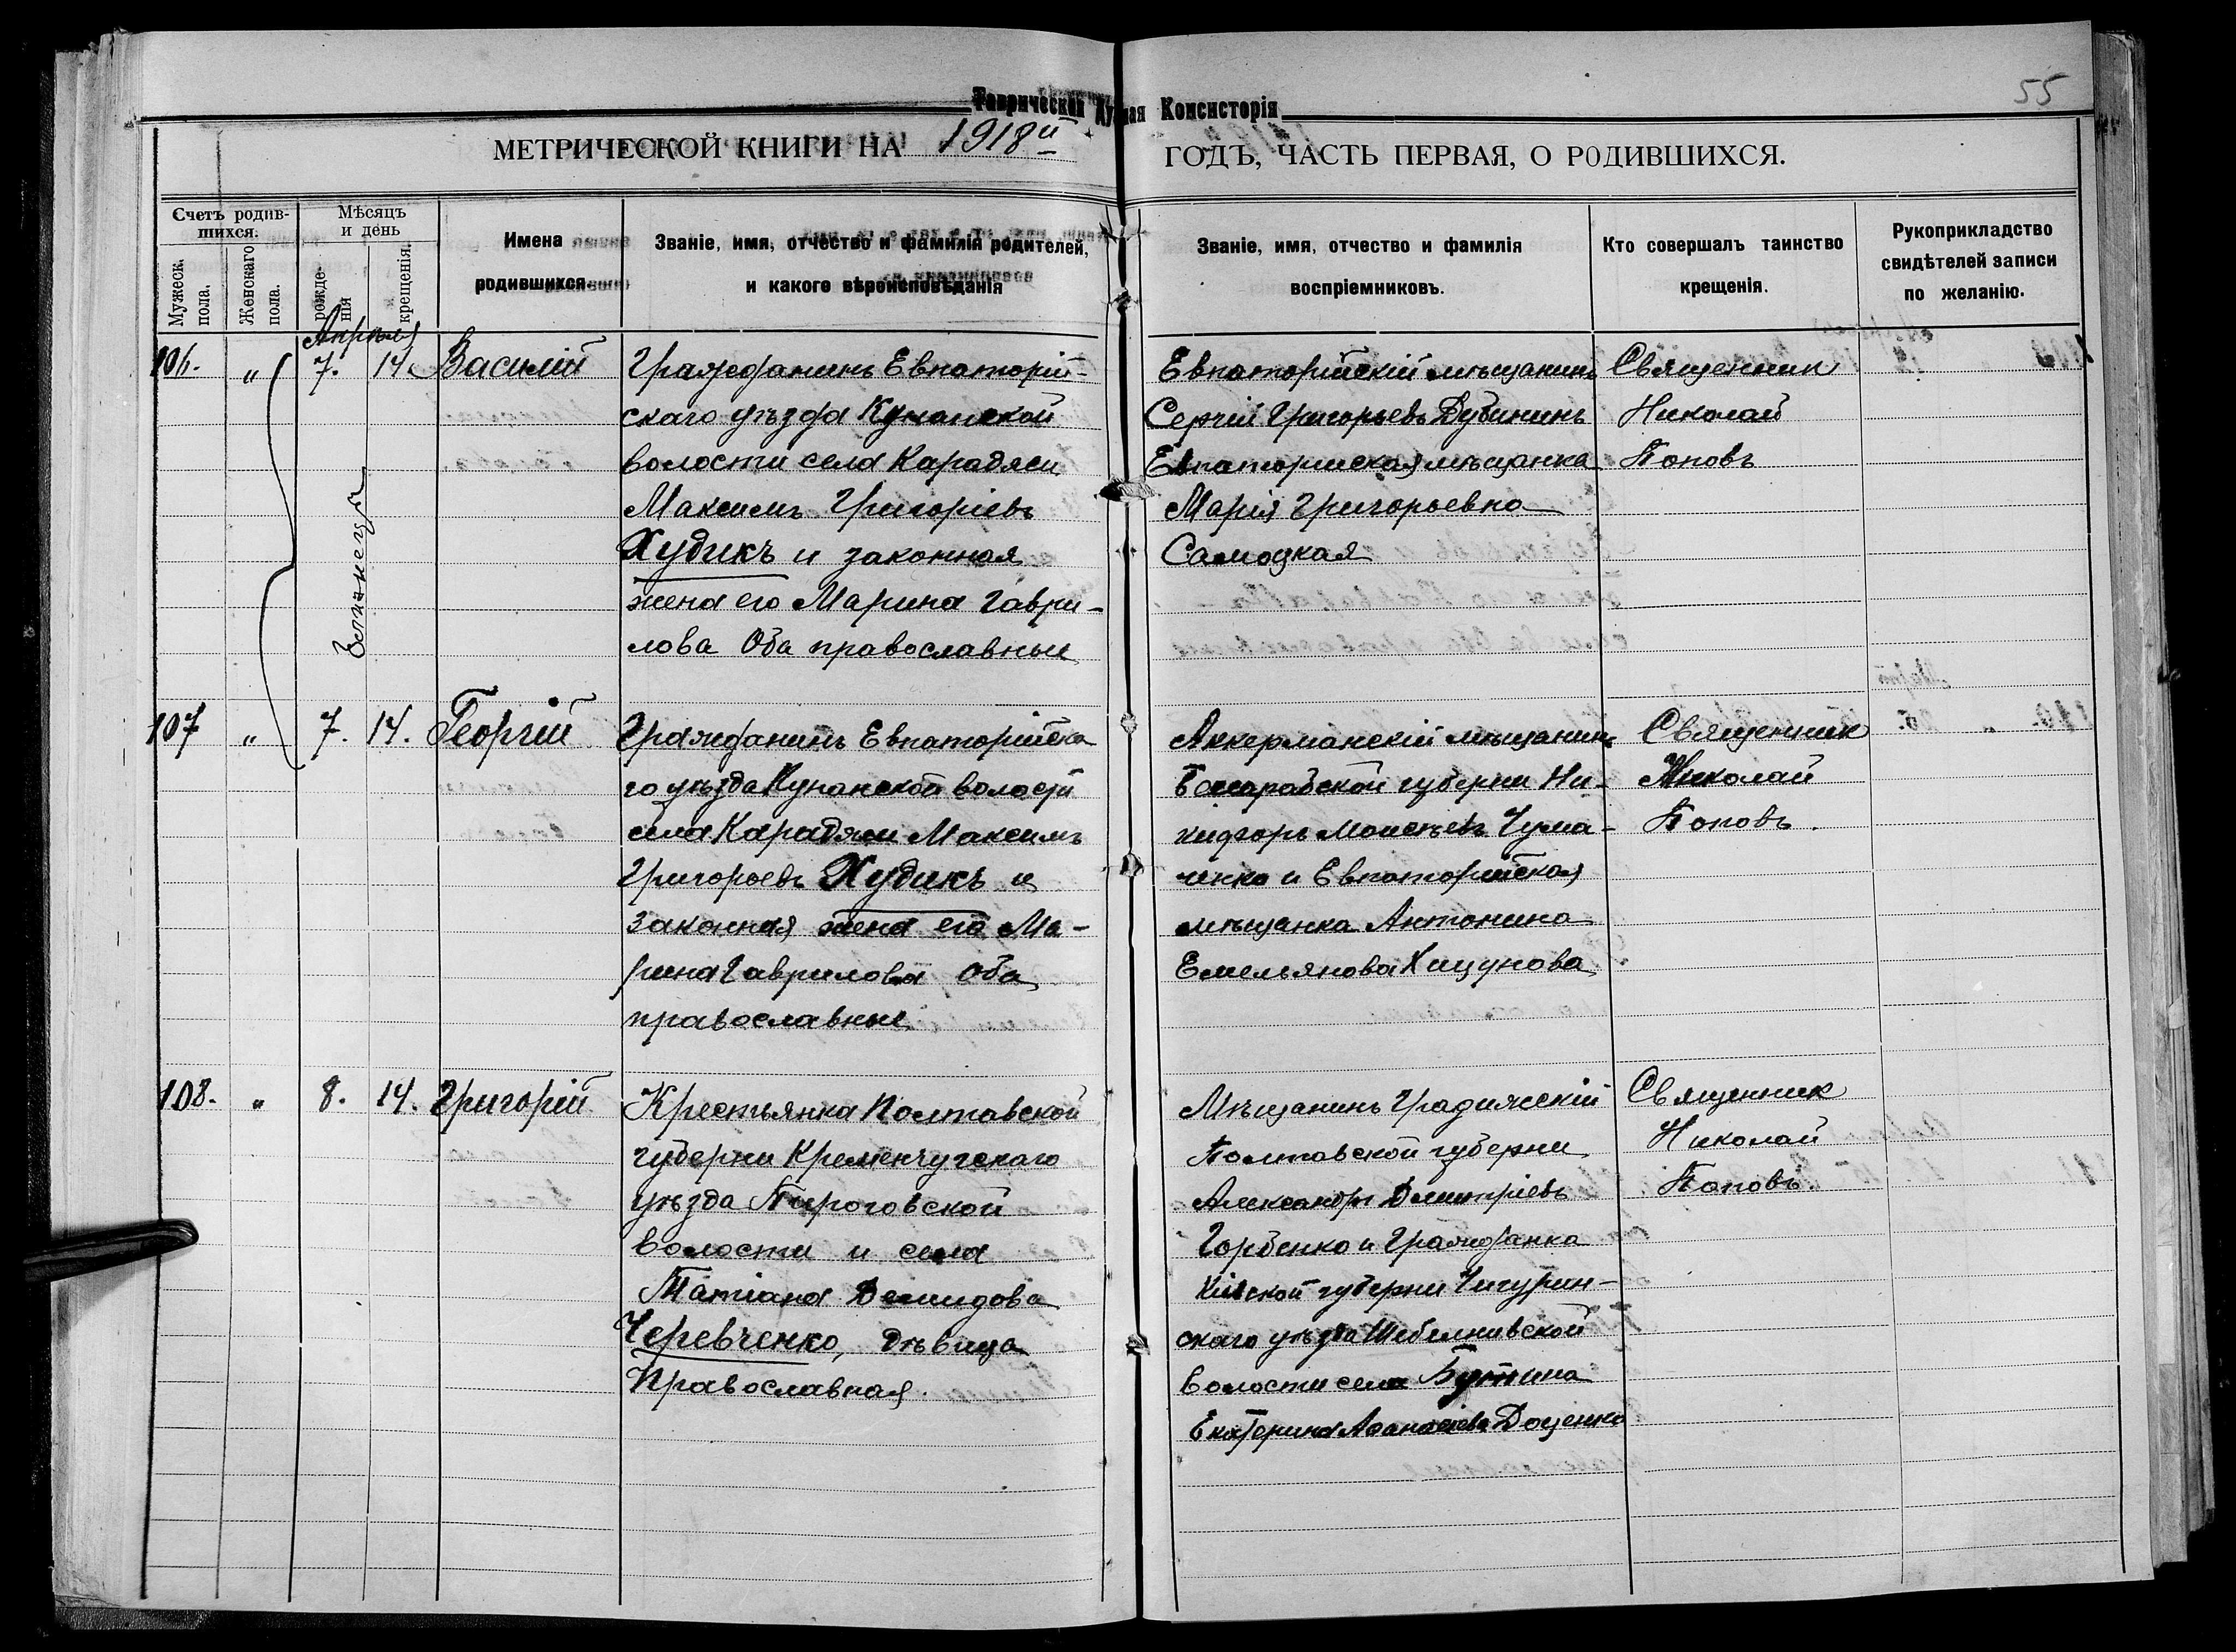 Таврическая Духовная Консисторія
55
МЕТРИЧЕСКОЙ КНИГИ НА 1918й ГОДЪ, ЧАСТЬ ПЕРВАЯ, О РОДИВШИХСЯ.
Счетъ родив-
шихся.
Мужеск.
пола.
Женскаго
пола.
Мѣсяцъ
и день
рожде-
нія
крещенія.
Имена
родившихся.
Званіе, имя, отчество и фамилія родителей,
и какого вѣроисповѣданія
Званіе, имя, отчество и фамилія
воспріемниковъ.
Кто совершалъ таинство
крещенія.
Рукоприкладство
свидѣтелей записи
по желанію.
Апрѣля
106. " 7. 14. Василій
Близнецы
Гражданинъ Евпаторій-
скаго уѣзда Кунанской
волости села Карадяси
Максимъ Григоріевъ
Худикъ и законная
жена его Марина Гаври-
лова Оба православные
Евпаторійскій мѣщанинъ
Сергій Григорьевъ Дубининъ
Евпаторійская мѣщанка
Марія Григорьевна
Самоцкая
Священник
Николай
Поповъ
107 " 7. 14. Георгій
Гражданинъ Евпаторійска
го уѣзда Кунанской волости
села Карадяси Максимъ
Григорьевъ Худикъ и
законная жена его Ма-
рина Гаврилова Оба
православные
Аккерманскій мѣщанинъ
Бессарабской губерни Ни-
кифоръ Моисѣевъ Чума-
ченко и Евпаторійская
мѣщанка Антонина
Емельянова Хицунова
Священник
Николай
Поповъ.
108. " 8. 14. Григорій
Крестьянка Полтавской
губерни Кременчугскаго
уѣзда Пироговской
волости и села
Татіана Демидова
Черевченко, дѣвица
Православная.
Мѣщанинъ Градижскій
Полтавской губерни
Александръ Дмитріевъ
Горбенко и Гражданка
Кіевской губерни Чигирин-
скаго уѣзда Шебелнивской
волости села Бутина
Екатерина Аѳанасіева Доценко
Священник
Николай
Поповъ.